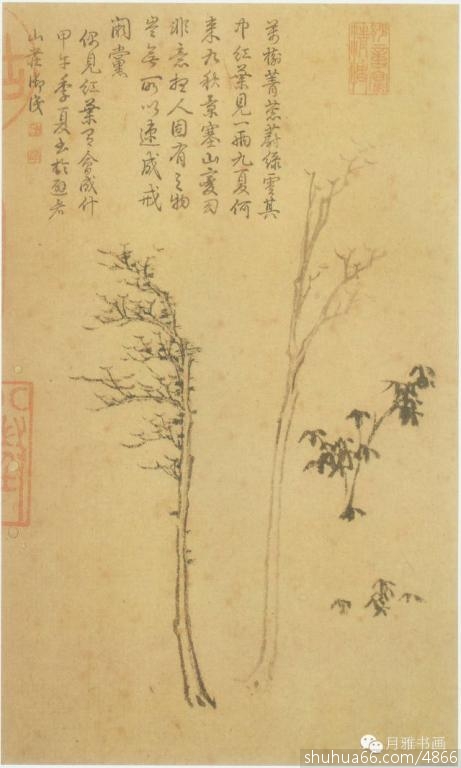 萬樹菁葱蔚綠雲其
中紅葉見一兩九夏何
来九秋景塞山變幻
非意想人固有之物
豈無所以速成戒
闕黨
偶見紅葉有會成什
甲午季夏書於避暑
山莊御識
月雅书画
shuhua66.com/4866